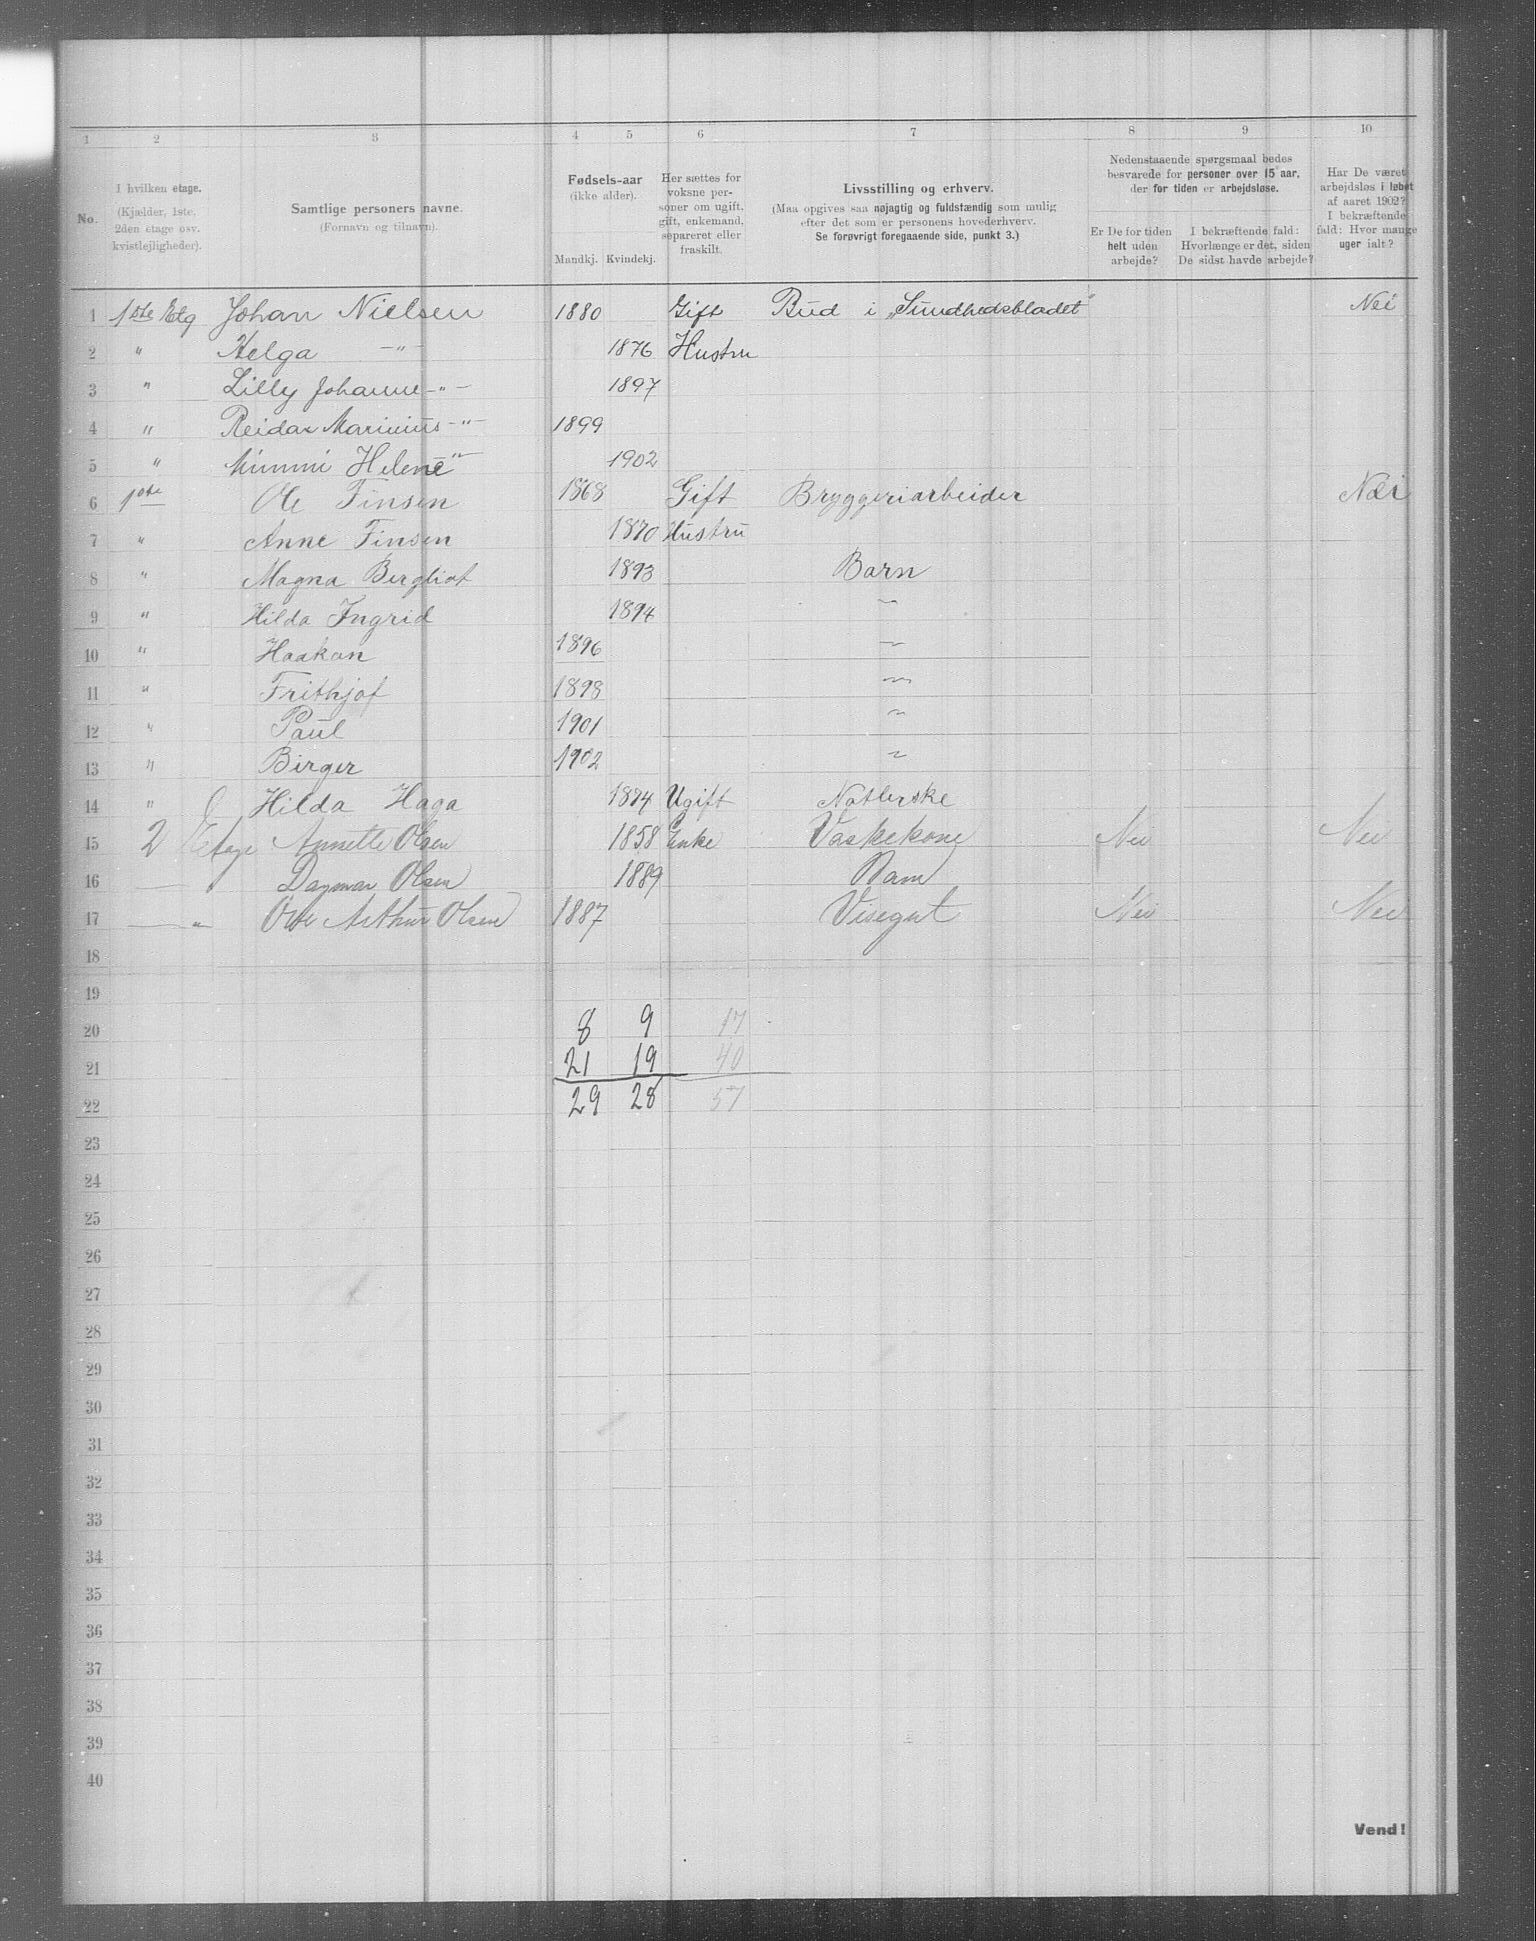 1 2 3 4 5 6 7 8 9 10
No.
I hvilken etage.
(Kjælder, 1ste,
2den etage osv.
kvistlejligheder).
Samtlige personers navne.
(Fornavn og tilnavn).
Fødsels-aar
(ikke alder).
Mandkj. Kvindekj.
Her sættes for
voksne per-
soner om ugift,
gift, enkemand,
separeret eller
fraskilt.
Livsstilling og erhverv.
(Maa opgives saa nøjagtig og fuldstændig som mulig
efter det som er personens hovederhverv.
Se forøvrigt foregaaende side, punkt 3.)
Nedenstaaende spørgsmaal bedes
besvarede for personer over 15 aar,
der for tiden er arbejdsløse.
Er De for tiden
helt uden
arbejde?
I bekræftende fald:
Hvorlænge er det, siden
De sidst havde arbejde?
Har De været
arbejdsløs i løbet
af aaret 1902?
I bekræftende
fald: Hvor mange
uger ialt?
1 1ste Etg Johan Nielsen 1880 Gift Bud i „Sundhedsbladet" Nei
2 " Helga -"- 1876 Hustru
3 " Lilly Johanne -"- 1897
4 " Reidar Marinius -"- 1899
5 " Mimmi Helene " 1902
6 1ste Ole Finsen 1868 Gift Bryggeriarbeider Nei
7 " Anne Finsen 1870 Hustru
8 " Magna Bergliot 1893 Barn
9 " Hilda Ingrid 1894 "
10 " Haakon 1896 "
11 " Frithjof 1898 "
12 " Paul 1901 "
13 " Birger 1902 "
14 " Hilda Haga 1874 Ugift
15 2 Etage Annette Olsen 1858 Enke Vaskekone Nei Nei
16 — Dagmar Olsen 1889 Barn
17 — " Arthur Olsen 1887 Visegut Nei Nei
18
19
20 8 9 17
21 21 19 40
22 29 28 57
23
24
25
26
27
28
29
30
31
32
33
34
35
36
37
38
39
40
Vend!